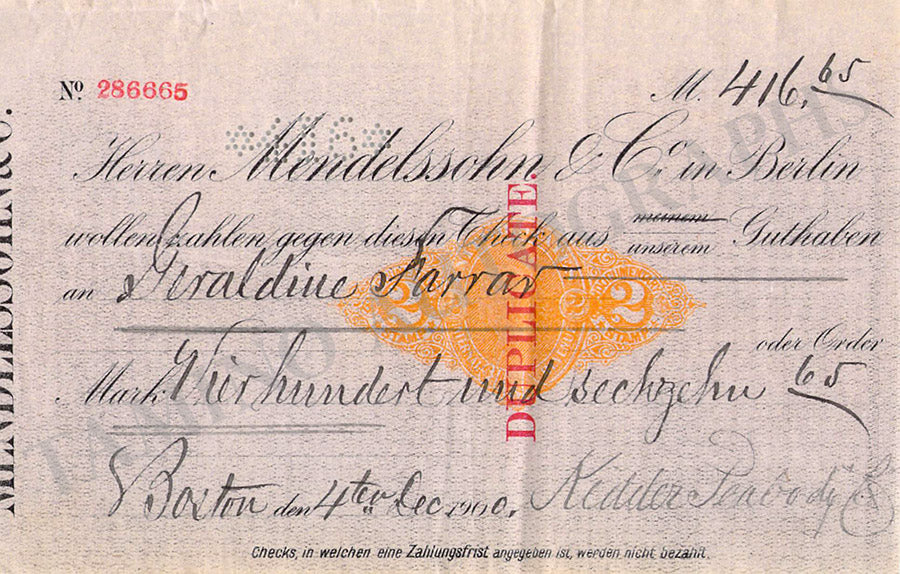 No. 286665
M. 416.65
*416*
Herren Mendelssohn & Co in Berlin
wollen zahlen gegen diesen Check aus meinem unserem Guthaben
an Geraldine Farrar
oder Order
Mark Vierhundert und sechzehn 65
Boston den 4ten Dec 1900. Kidder Peabody & Co
DUPLICATE.
2 2
MENDELSSOHN & Co.
Checks, in welchen eine Zahlungsfrist angegeben ist, werden nicht bezahlt.
TAMINO AUTOGRAPHS